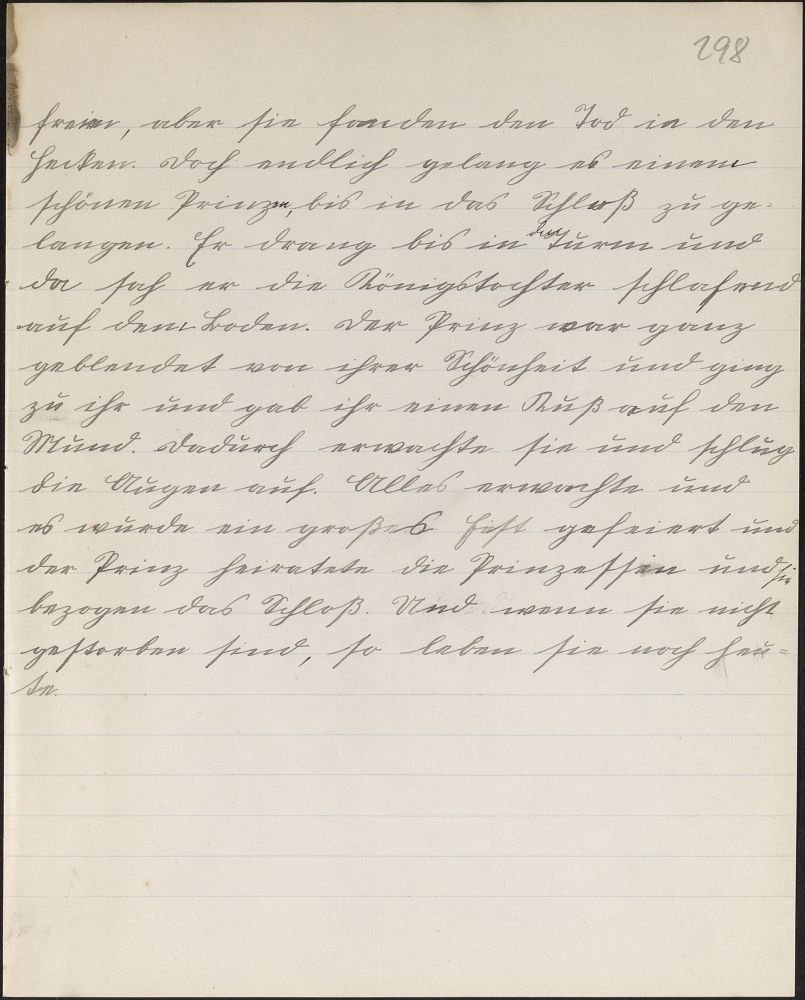 298
freien, aber sie fanden den Tod in den
Hecken. Doch endlich gelang es einem
schönen Prinzen, bis in das Schloß zu ge=
langen. Er drang bis in den Turm und
da sah er die Königstochter schlafend
auf dem Boden. Der Prinz war ganz
geblendet von ihrer Schönheit und ging
zu ihr und gab ihr einen Kuß auf den
Mund. Dadurch erwachte sie und schlug
die Augen auf. Alles erwachte und
es wurde ein großes Fest gefeiert und
der Prinz heiratete die Prinzessin und sie
bezogen das Schloß. Und wenn sie nicht
gestorben sind, so leben sie noch heu=
te.